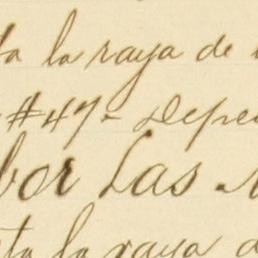 ta la raya de
#47- Depe
bor Las
ta la raya d